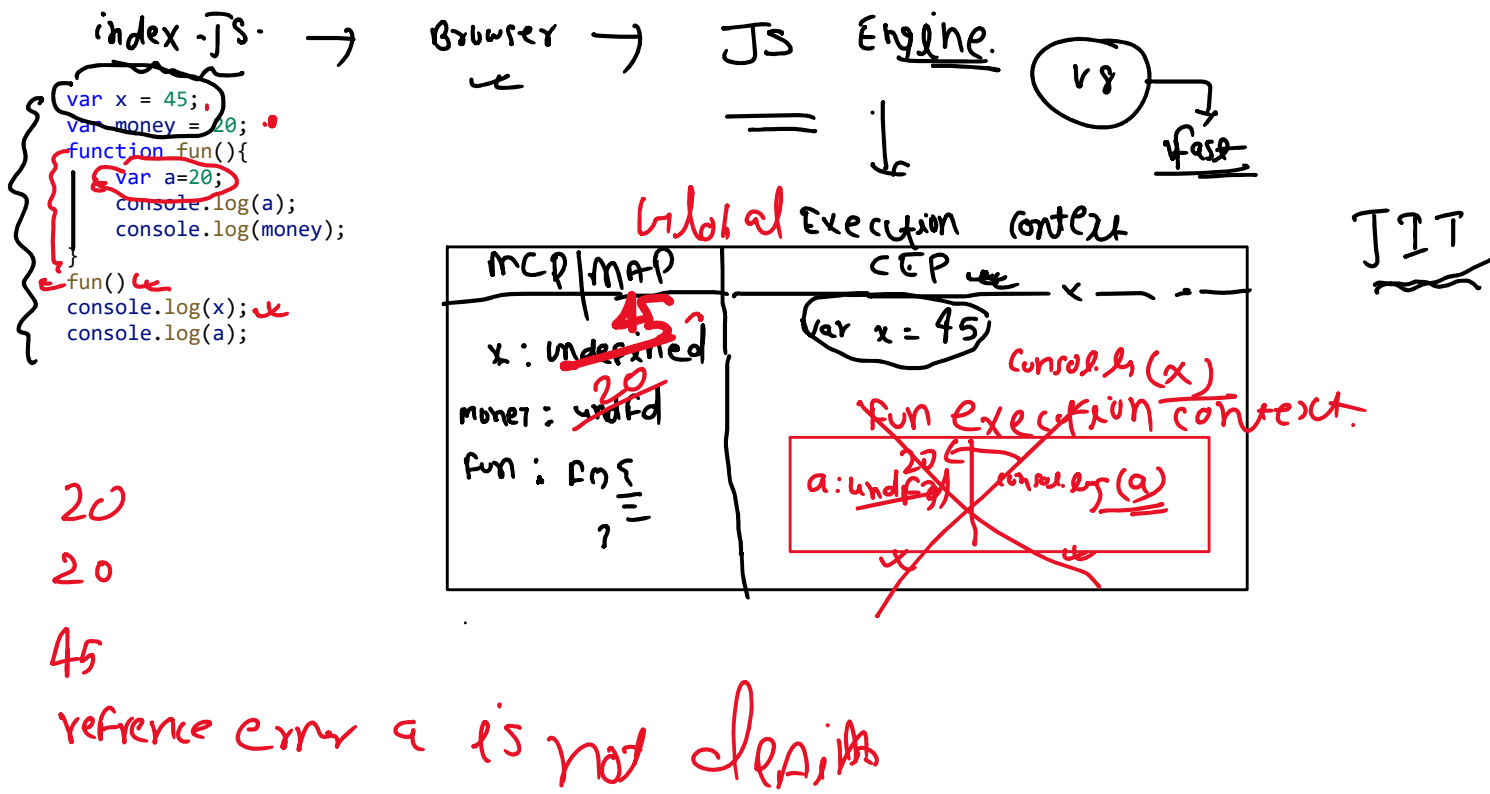 index .JS. → Browser → JS Engine.
V8
fast
var x = 45;
var money = 20;
function fun(){
var a=20;
console.log(a);
console.log(money);
}
fun()
console.log(x);
console.log(a);
Global Execution context
JIT
MCP|MAP
CEP
x
45
x : undefined
20
money : undfd
fun : fn {
}
var x = 45
consol.log (x)
fun execution context.
20
a : undfd
consol.log (a)
20
20
45
refrence error a is not